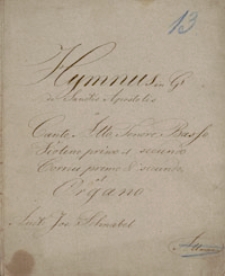 13
Hymnus in G
de Sanctis Apostolis
a
Canto Alto Tenore Basso
Violino primo & secundo
Cornu primo & secundo
et
Organo
Auct. Jos.